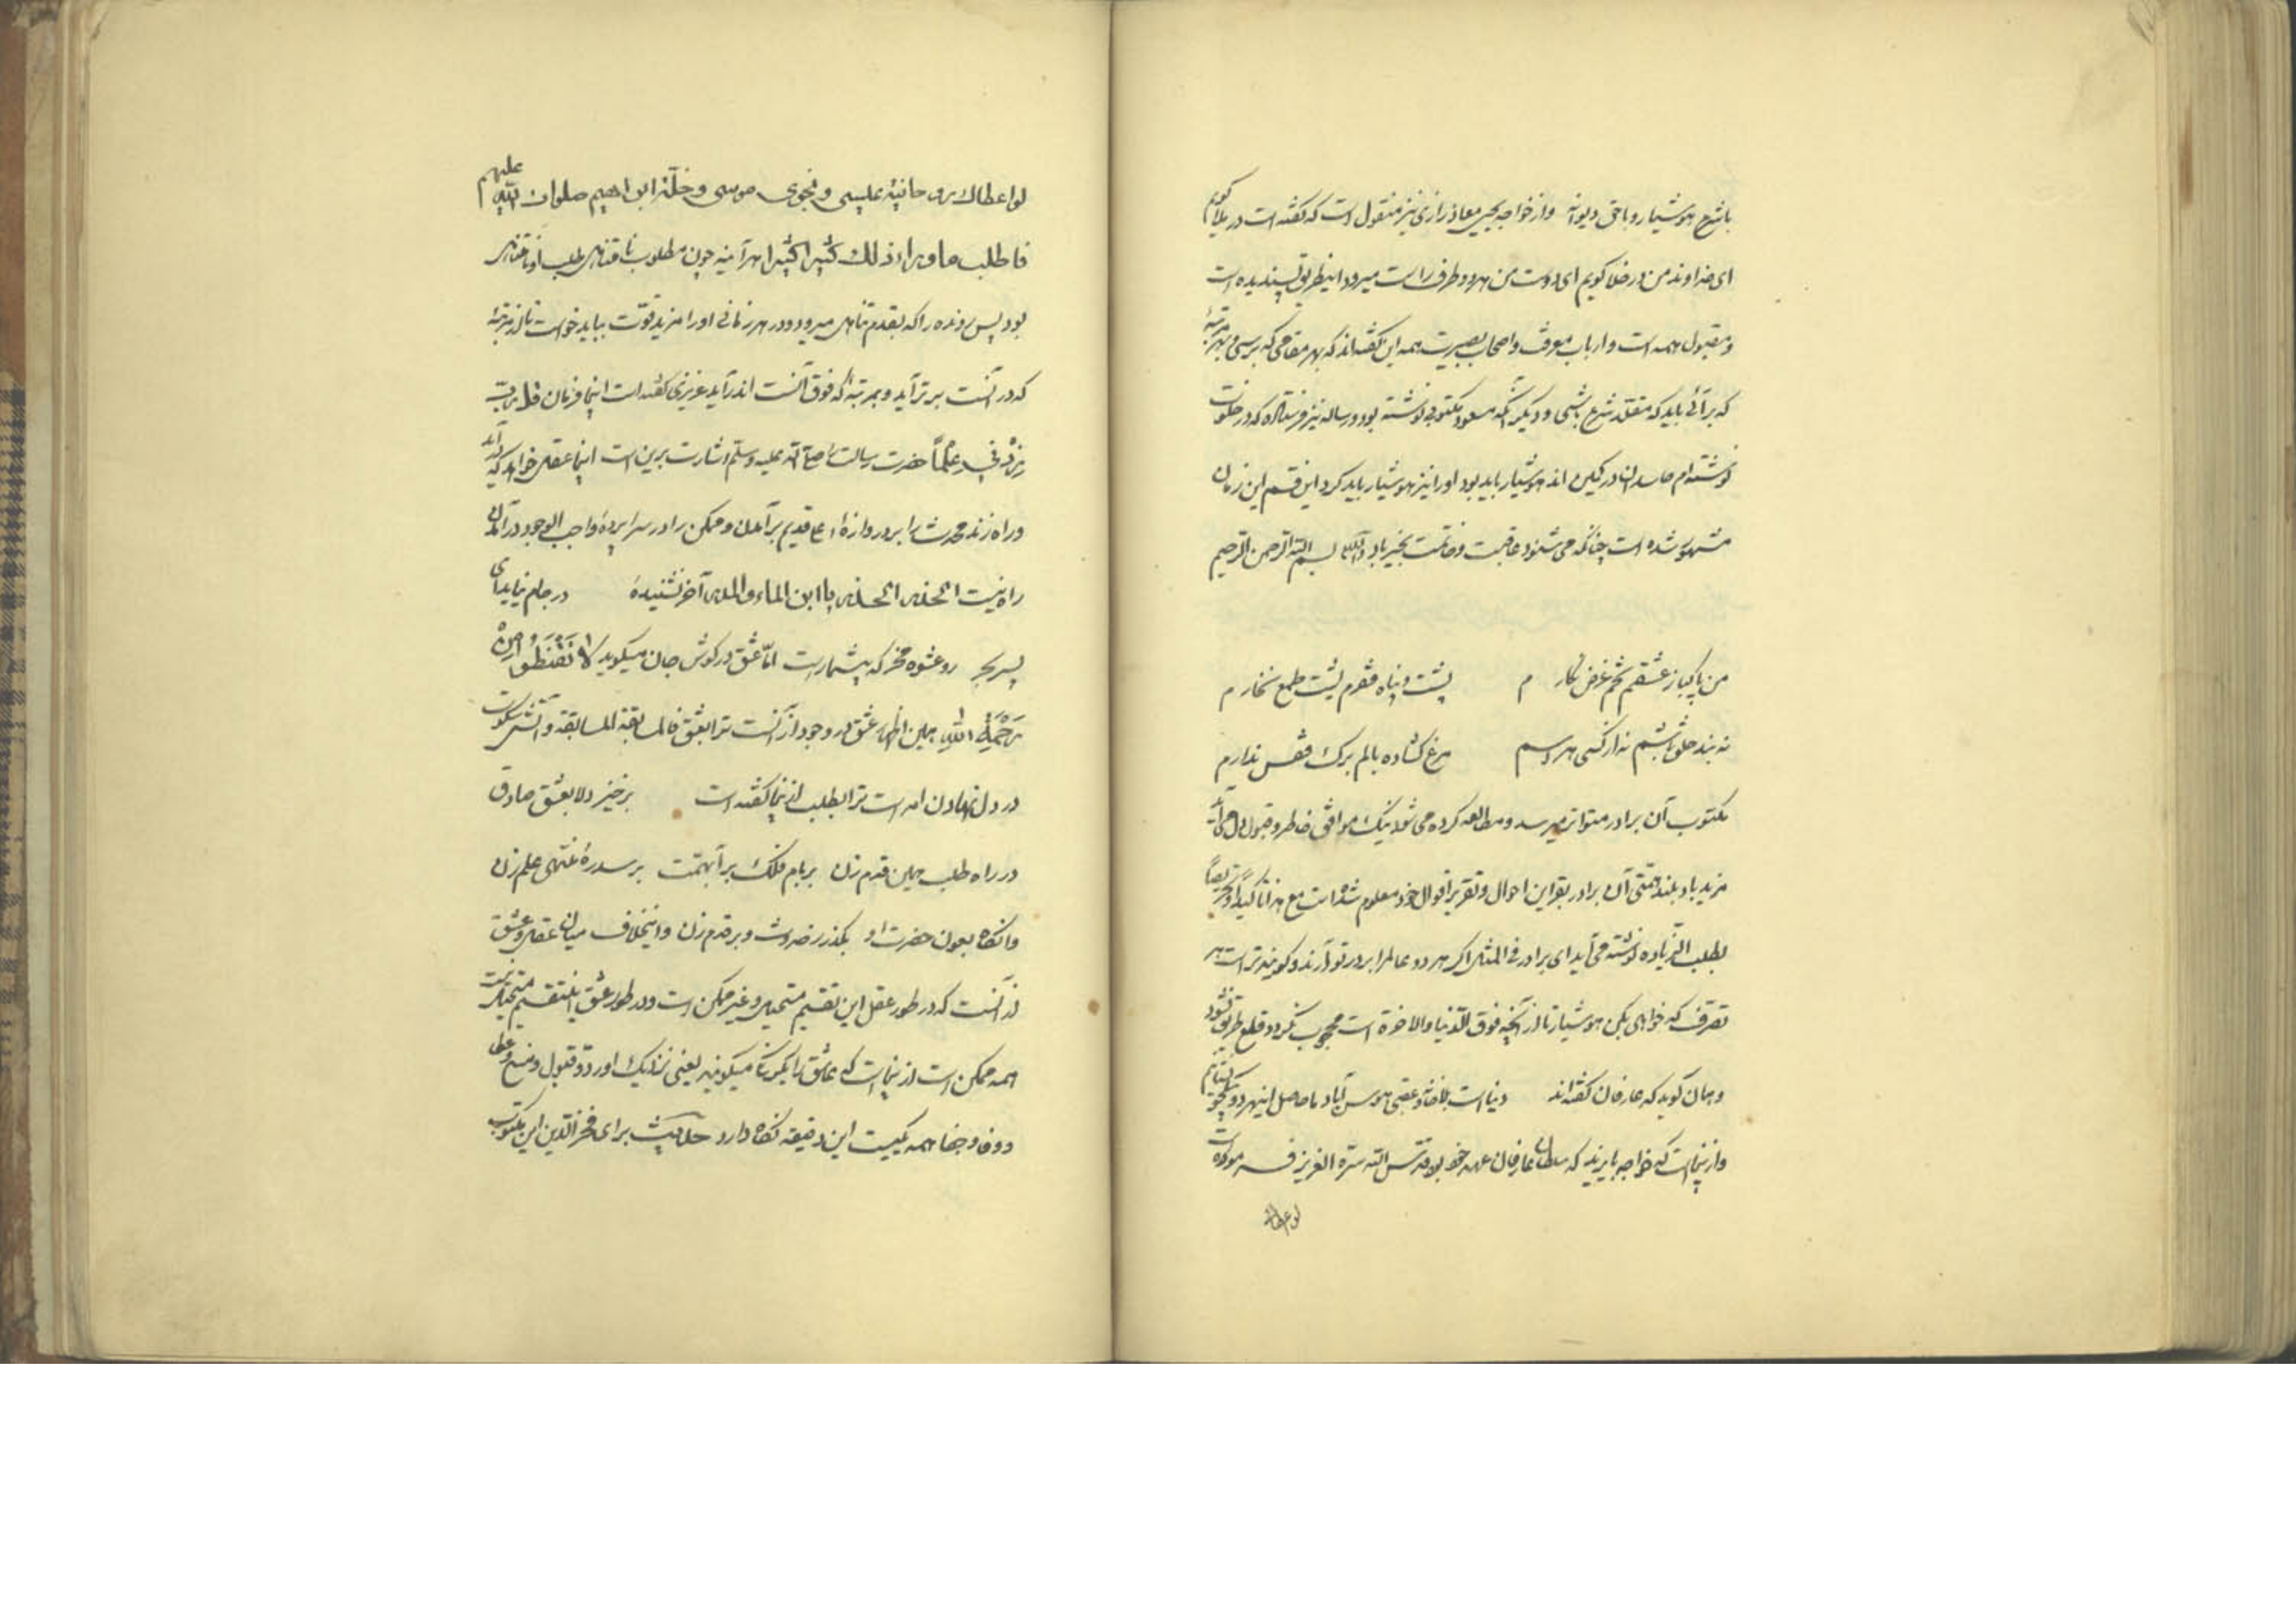 باشرع هوشیار و باحق دیوانه واز خواجه یحیی معاذ رازی نیز منقول است که گفته است در ملا گویم
ای خداوند من در خلا گویم ای دوست من هر دو طرف راست میرود اینطریق پسندیده است
و مقبول همه است و ارباب معرفت و اصحاب بصیرت همه این گفته‌اند که بهر مقامی که برسی و بهر مرتبهٔ
که برآئی باید که مقلد شرع باشی و دیگر آنکه مسعود مکتوبی نوشته بود و رساله نیز فرستاده که در خلوت
نوشته‌ام حاسدان در کمین اند هوشیار باید بود او را نیز هوشیار باید کرد این قسم این زمان
مشهور شده است چنانکه می شنود عاقبت و خاتمت بخیر باد والسلام بسم الله الرحمن الرحیم
من پاکباز عشقم تخم غرض نکارم پشت و پناه فقرم پشت طمع نخارم
نه بند خلق باشم نه از کسی هراسم مرغ گشاده بالم برگ قفس ندارم
مکتوب آن برادر متواتر میرسد و مطالعه کرده می شود نیک موافق خاطر و قبول دل می آید
مزید باد بلند همتی آن برادر بقراین احوال و تقریر اقوال خود معلوم شده است مع هذا تاکیدًا و تحریضًا
بطلب الزیاده نوشته می آید ای برادر فی المثل اگر هر دو عالم را بر در تو آرند و گویند تراست هر
تصرف که خواهی بکن هوشیار تا از آنچه فوق الدنیا والاخرة است محجوب نگردد و قطع طریق نشود
و همان گوید که عارفان گفته‌اند دنیا است بلاخانه و عقبی هوس آباد ما حاصل اینهر دو بیکجو نستانیم
و از ینجاست که خواجه بایزید که سلطان عارفان عهد خود بود قدس الله سره العزیز فرموده است
لو اعطاک
لو اعطاک روحانیة عیسی و نجوی موسی و خلة ابراهیم صلوات الله علیهم
فاطلب ما وراء ذلک کثیرا کثیرا هر آینه چون مطلوب نامتناهی طلب او نامتناهی
بود پس رونده را که بقدم تناهی میرود در هر زمانی او را مزید قوت بباید خواست تا از مرتبهٔ
که در آنست برتر آید و بمرتبهٔ که فوق آنست اندر آید عزیزی گفته است اینجا فرمان قل رب
زدنی علمًا حضرت رسالت را صلی الله علیه وسلم اشارت برین است اینجا عقل خواهد که آید
و راه زند محدث را بر دروازهٔ قدیم برآمدن و ممکن را در سراپردهٔ واجب الوجود درآمدن
راه نیست الحذر الحذر یا ابن الماء والمدر آخر نشنیدهٔ در جام نیاید ای
پسر بحر رو عشوه مخر که بیشمار است اما عشق در گوش جان میگوید لا تقنطوا من
رحمة الله همین اظهار عشق در وجود از آنست ترا بعشق فالمسابقة المسابقة و آتش سکوت
در دل نهادن امر است ترا بطلب از ینجا گفته است برخیز دلا بعشق صادق
در راه طلب همین قدم زن بر بام فلک برآ بهمت بر سدرهٔ منتهی علم زن
وانگاه بعون حضرت او بگذر ز حدوث و بر قدم زن و اینخلاف میان عقل و عشق
از آنست که در طور عقل این تقسیم مستحیل و غیر ممکن است و در طور عشق این تقسیم مستحیل نیست
همه ممکن است از ینجاست که عاشق را یکرنگ میگویند یعنی نزدیک او رد و قبول و منع و عطا
و وفا و جفا همه یکیست این دقیقه نگاه دارد حدیث برای فخرالدین این مکتوب